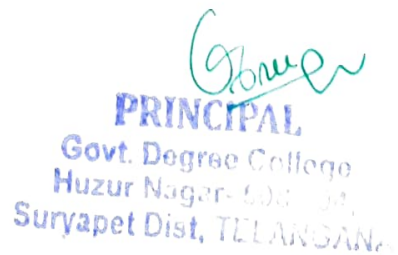 PRINCIPAL
Govt. Degree College
Huzur Nagar-
Suryapet Dist, TELANGANA.